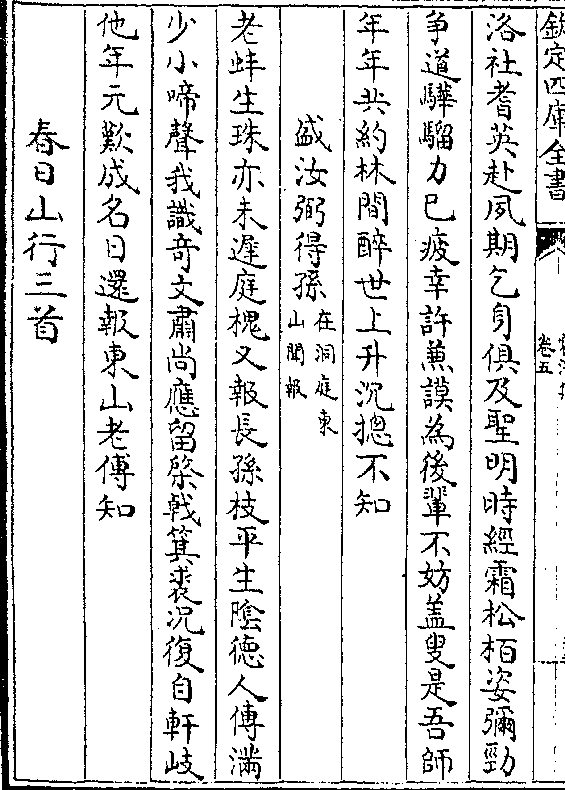 欽定四庫全書
卷五
洛社耆英赴夙期乞身俱及聖明時經霜松柏姿彌勁
争道驊騮力已疲幸許薫謨為後軰不妨盖叟是吾師
年年共約林間醉世上升沉摠不知
盛汝弼得孫在洞庭東山聞報
老蚌生珠亦未遲庭槐又報長孫枝平生隂德人傳滿
少小啼聲我識竒文肅尚應留棨戟箕裘况復自軒岐
他年元歎成名日還報東山老傅知
春日山行三首